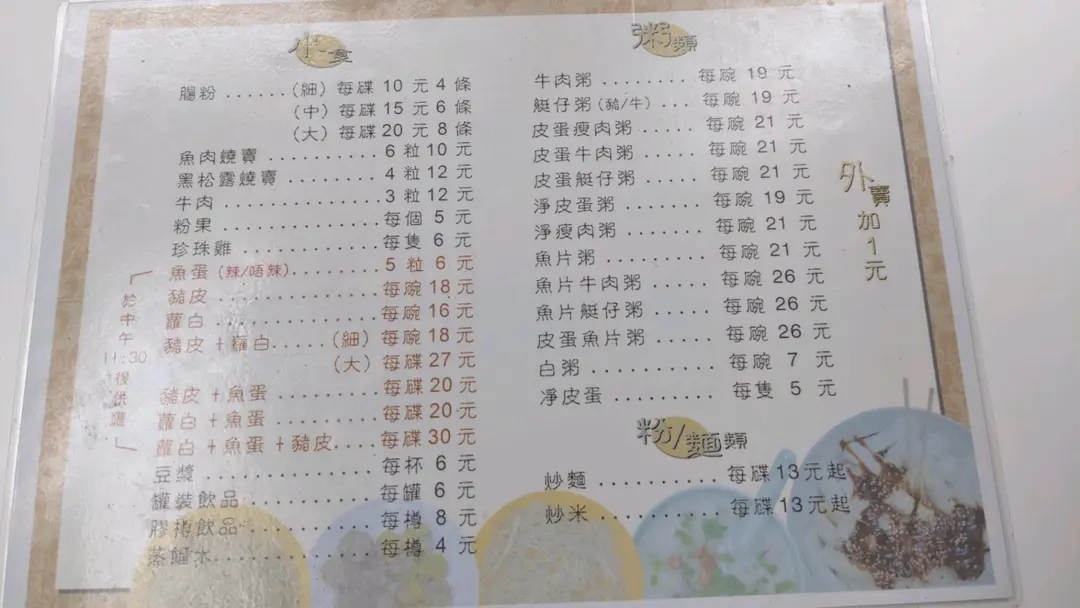 小食
腸粉 ...... (細) 每碟 10 元 4 條
(中) 每碟 15 元 6 條
(大) 每碟 20 元 8 條
魚肉燒賣 ........... 6 粒 10 元
黑松露燒賣 ........ 4 粒 12 元
牛肉 ................ 3 粒 12 元
粉果 ................ 每個 5 元
珍珠雞 ............. 每隻 6 元
魚蛋 (辣/唔辣) ......... 5 粒 6 元
豬皮 ................ 每碗 18 元
蘿白 ................ 每碗 16 元
豬皮 + 蘿白 ..... (細) 每碗 18 元
(大) 每碟 27 元
豬皮 + 魚蛋 ............ 每碟 20 元
蘿白 + 魚蛋 ............ 每碟 20 元
蘿白 + 魚蛋 + 豬皮 .... 每碟 30 元
於中午11:30後供應
豆漿 ................ 每杯 6 元
罐裝飲品 ........... 每罐 6 元
膠樽飲品 ........... 每樽 8 元
蒸餾水 ............. 每樽 4 元
粥類
牛肉粥 ........ 每碗 19 元
艇仔粥 (豬/牛) ... 每碗 19 元
皮蛋瘦肉粥 ..... 每碗 21 元
皮蛋牛肉粥 ..... 每碗 21 元
皮蛋艇仔粥 ..... 每碗 21 元
淨皮蛋粥 ....... 每碗 19 元
淨瘦肉粥 ....... 每碗 21 元
魚片粥 ......... 每碗 21 元
魚片牛肉粥 ..... 每碗 26 元
魚片艇仔粥 ..... 每碗 26 元
皮蛋魚片粥 ..... 每碗 26 元
白粥 .......... 每碗 7 元
淨皮蛋 ......... 每隻 5 元
外賣加1元
粉/麵類
炒麵 .......... 每碟 13 元起
炒米 .......... 每碟 13 元起